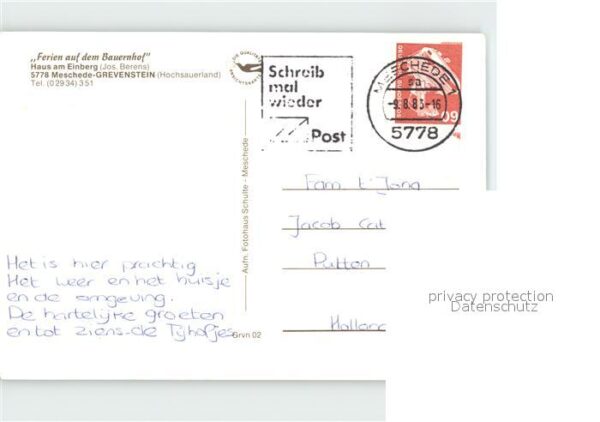 „Ferien auf dem Bauernhof"
Haus am Einberg (Jos. Berens)
5778 Meschede-GREVENSTEIN (Hochsauerland)
Tel. (02934) 351
Schreib
mal
wieder
Post
MESCHEDE 1
-9.8.83-16
5778
Aufn. Fotohaus Schulte - Meschede
Fam. t' Jong
Jacob Cat
Putten
Holland
Het is hier prachtig
Het weer en het huisje
en de omgeving.
De hartelijke groeten
en tot ziens de Tijhofjes
Grvn 02
privacy protection
Datenschutz